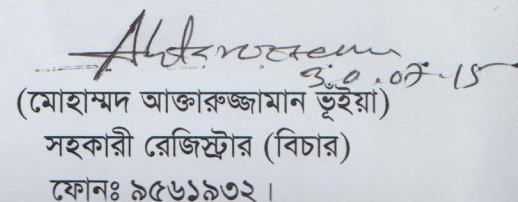 30.07.15
(মোহাম্মদ আক্তারুজ্জামান ভূঁইয়া)
সহকারী রেজিস্ট্রার (বিচার)
ফোনঃ ৯৫৬১৯৩২।